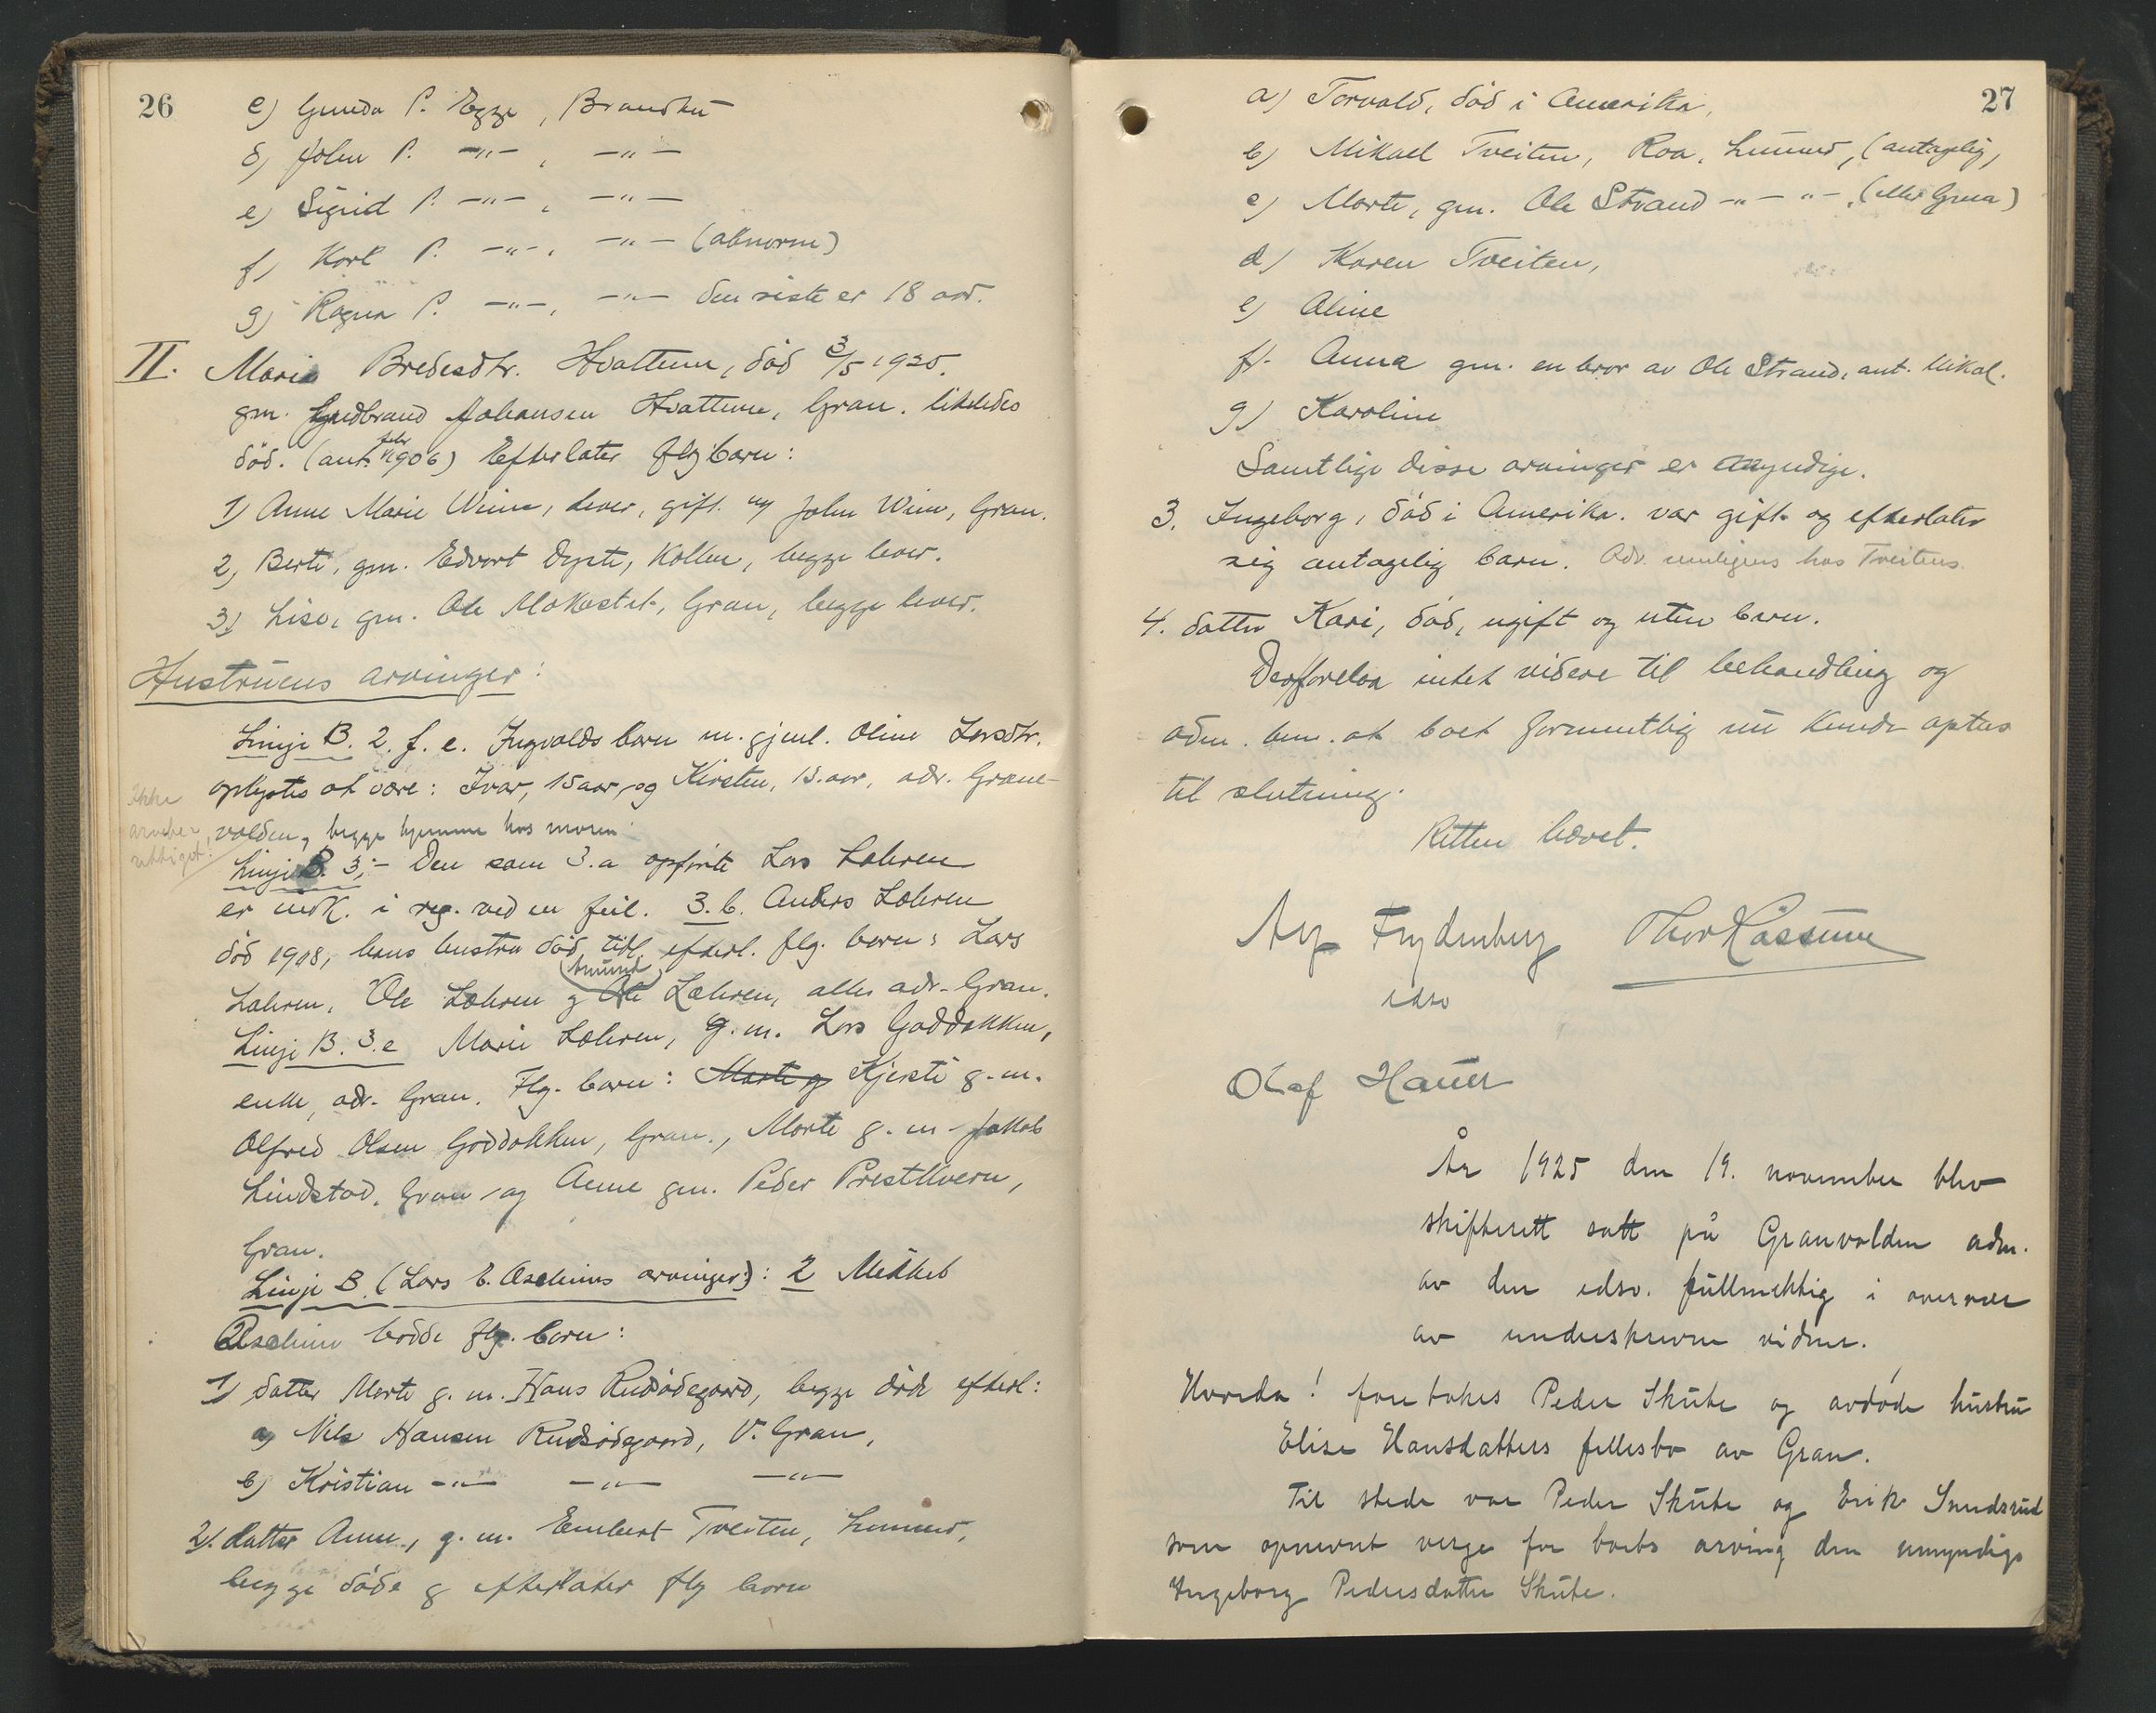 26
c) Gunda P. Egge, Brandbu
d) John P. -"- , -"-
e) Sigrid P. -"- , -"-
f) Karl P. -"- , -"- (abnorm)
g) Ragna P. -"- , -"- den siste er 18 aar.
II. Mari Bredesdtr. Hvattum, död 3/5 1925.
gm. Gudbrand Johansen Hvattum, Gran. likeledes
död. (ant. febr 1906) Efterlater flg barn:
1) Anne Marie Wien, lever, gift m John Wien, Gran.
2, Berte, gm. Edvart Dyste, Kolbu, begge lever.
3) Lise, gm. Ole Mokastet, Gran, begge lever.
Hustruens arvinger:
Linje B. 2. f. e. Ingvalds barn m. gjenl. Oline Larsdtr.
oplystes at være: Ivar, 15 aar, og Kirsten, 13. aar, adr. Grane-
ikke
arvebe
rettiget!
volden, begge hjemme hos moren
Linje B. 3; - Den som 3.a opførte Lars Lahren
er indk. i reg. ved en feil. 3. b. Anders Lahren
död 1918, hans hustru död tidl. efterl. flg. barn: Lars
Lahren, Ole Lahren og Ole (Amund) Lahren, alles adr. Gran.
Linje B. 3.c Marie Lahren, g. m. Lars Gaddakken,
enke, adr. Gran. Flg. barn: Marte og Kjersti g. m.
Alfred Olsen Goddakken, Gran., Marte g. m. Jakob
Lindstad, Gran, og Anne gm. Peder Prestkvern,
Gran.
Linje B. (Lars E. Aschims arvinger): 2 Mikkel
Aschim hadde flg. barn:
1) datter Marte g. m. Hans Rudsödegaard, begge döde efterl:
a) Nils Hansen Rudsödegaard, V. Gran,
b) Kristian -"- -"- -"-
2). datter Anne, g. m. Embert Tveiten, Lunner,
begge döde og efterlater flg barn
27
a) Torvald, död i Amerika,
b) Mikael Tveiten, Roa, Lunner, (antagelig,
c) Marte, gm. Ole Strand -"- "-, (eller Grua)
d) Karen Tveiten,
e) Aline
f). Anna gm. en bror av Ole Strand, ant. Mikal.
g) Karoline
Samtlige disse arvinger er myndige.
3. Ingeborg, död i Amerika. var gift og efterlater
sig antagelig barn. Adr. muligens hos Tveitens.
4. datter Kari, död, ugift og uten barn.
Der forelaa intet videre til behandling og
adm. bem. at boet formentlig nu kunde optas
til slutning.
Retten hævet.
Arp Frydenberg Thor Kassum
edsv
Olaf Hauer
År 1925 den 19. november blev
skifterett satt på Granvolden adm.
av den edsv. fullmektig i overvær
av underskrevne vidner.
Hvorda! foretokes Peder Skute og avdøde hustru
Elise Hansdatters fellesbo av Gran.
Til stede var Peder Skute og Erik
som opnevnt verge for boets arving den umyndige
Ingeborg Pedersdatter Skute.